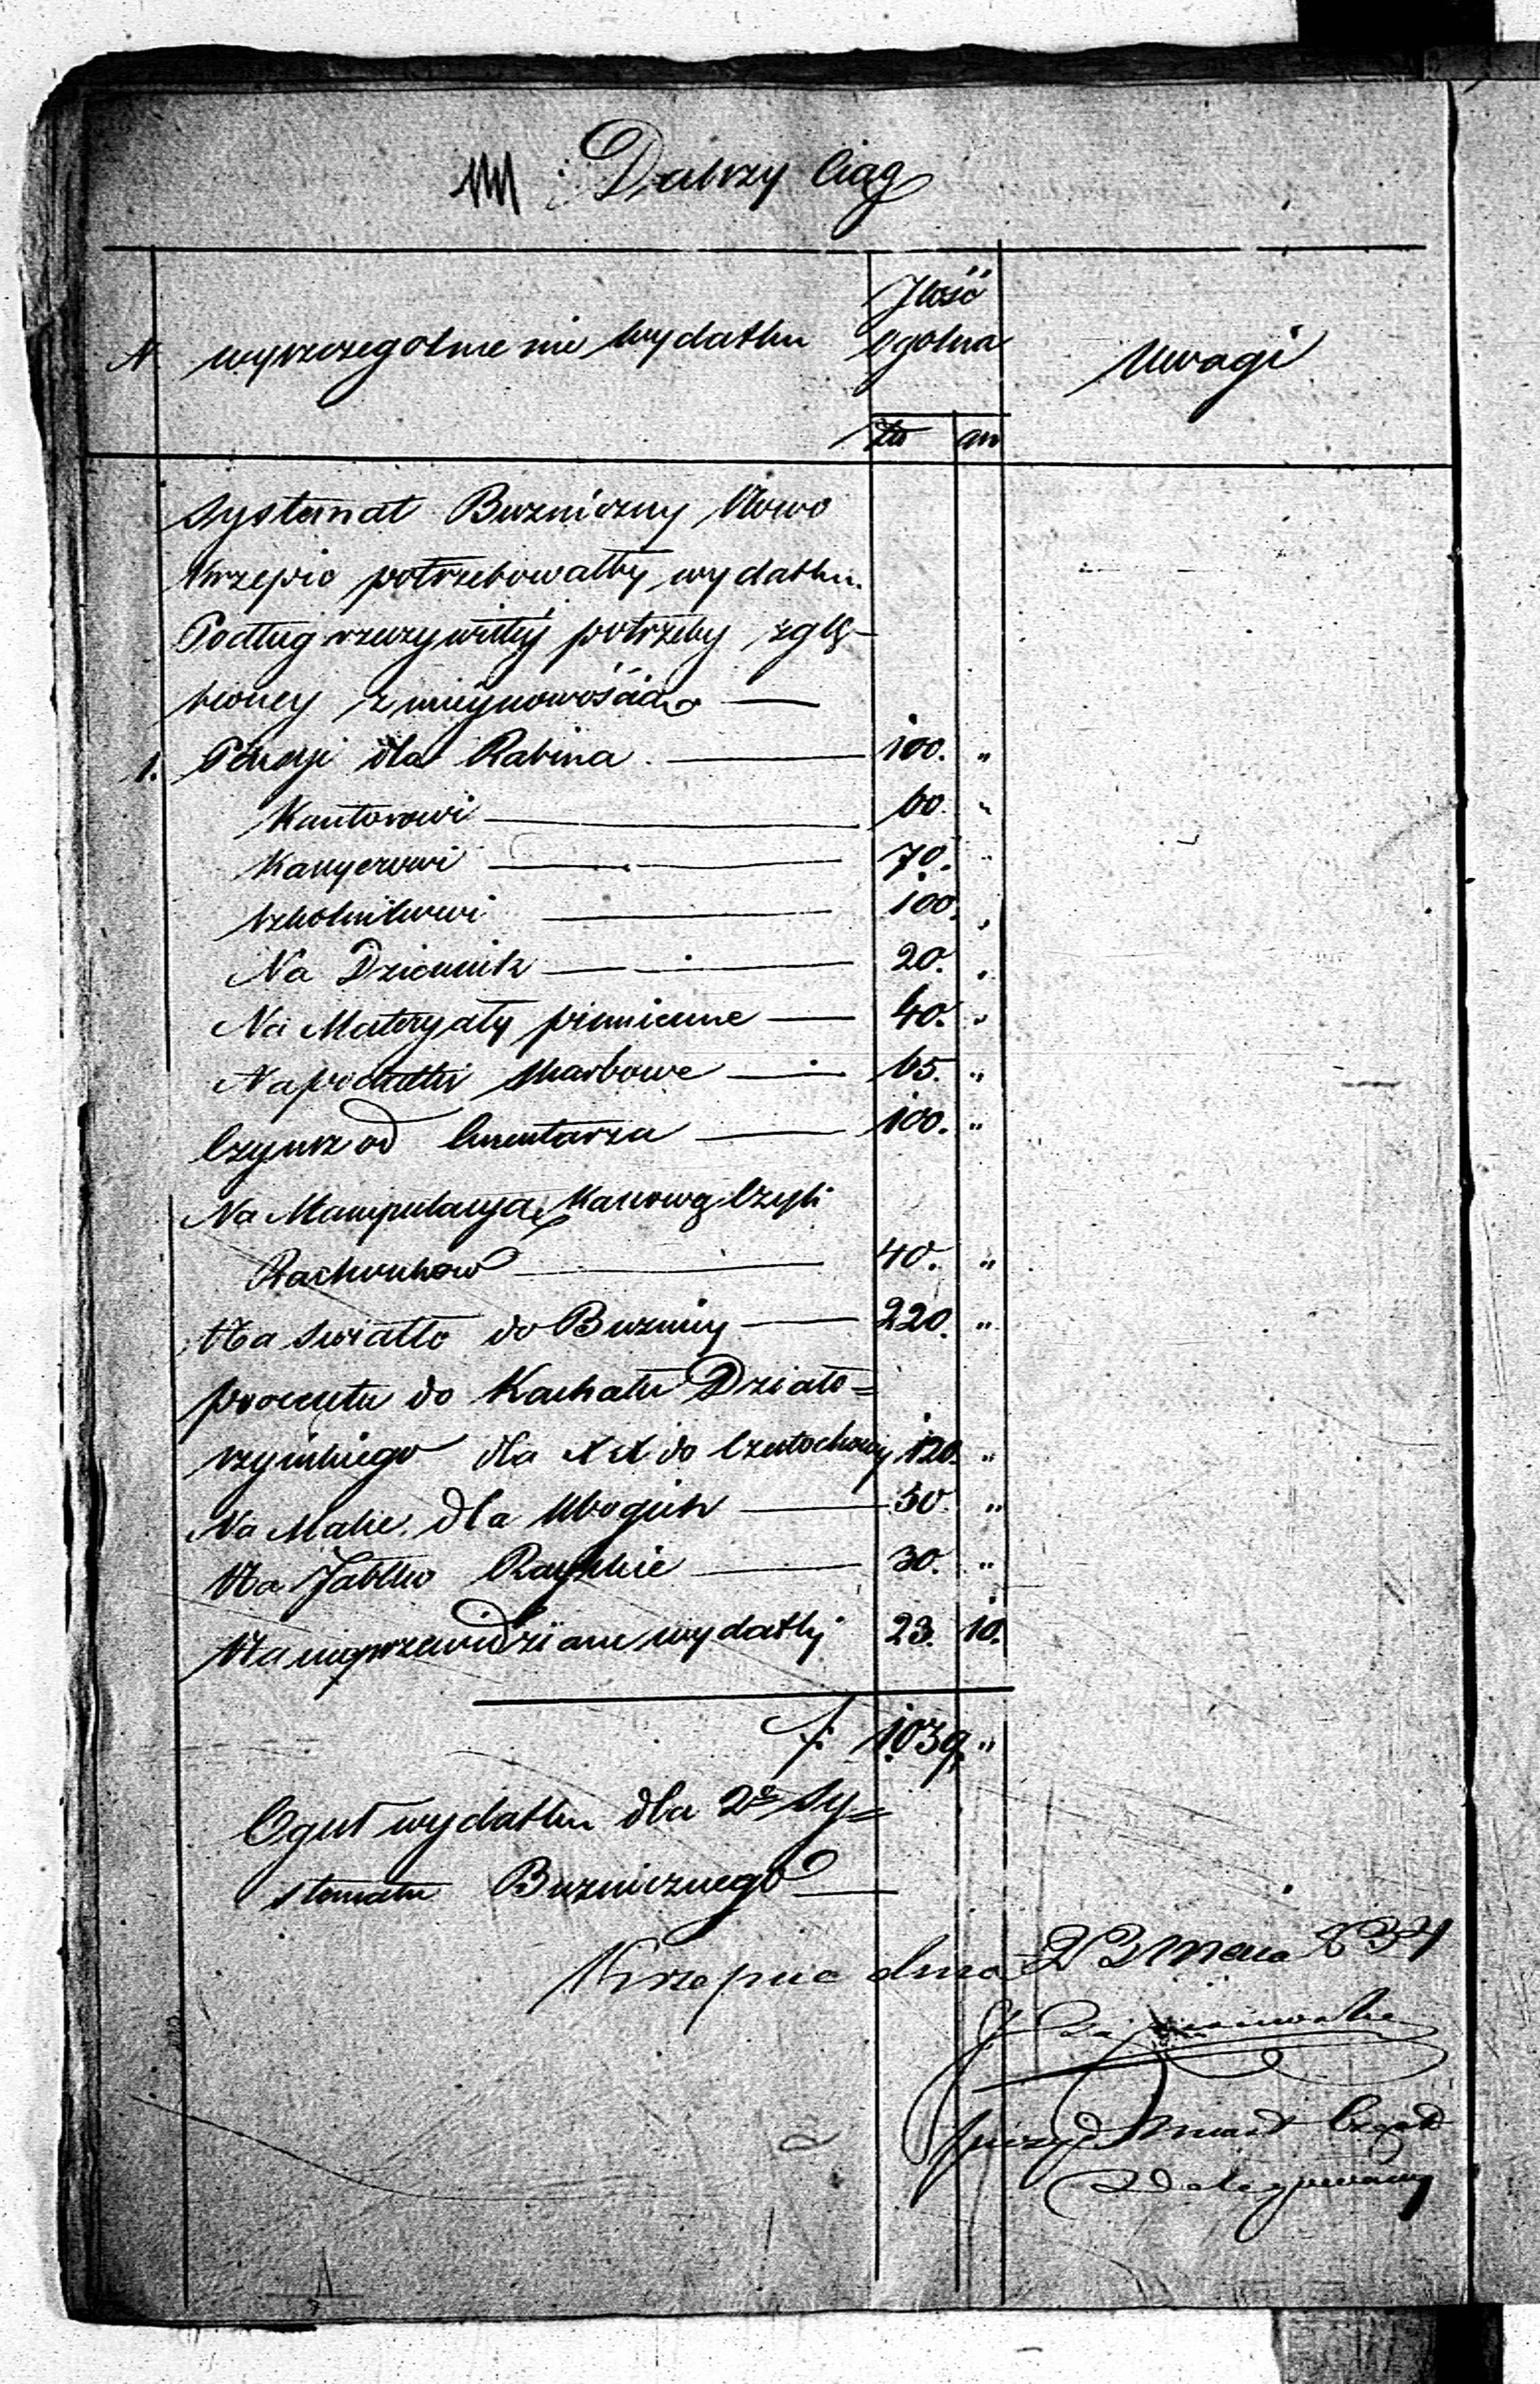 Dalszy Ciąg
N. wyszczegolnienie wydatku
Jlość
ogolna
Uwagi
złt gr
Systemat Buzniczny Nowo
Krzepic potrzebowałby wydatku
Podług rzeczywistey potrzeby zglę-
bioney z mieyscowościa —
1. Pensyi dla Rabina — 100. „
Kantorowi — 60. „
Kassyerowi — 70. „
Szkolnikowi — 100. „
Na Dziennik — 20. „
Na Materyały pismienne — 40. „
Na podatki skarbowe — 65. „
Czynsz od Cmentarza — 100. „
Na Manipulacyą Kassową Czyli
Rachunkow — 40. „
Na swiatło do Buznicy — 220. „
procentu do Kachału Działo=
szynskiego dla XX do Czestochowy 120. „
Na Mace dla Ubogich — 50. „
Na Jabłko Rayskie — 30. „
Na nieprzewidziane wydatky 23. 10.
f. 1039. „
Oguł wydatku dla 2o Sy=
stematu Buznicznego —
Krzepice dnia 22 Maia 834
Delegowany